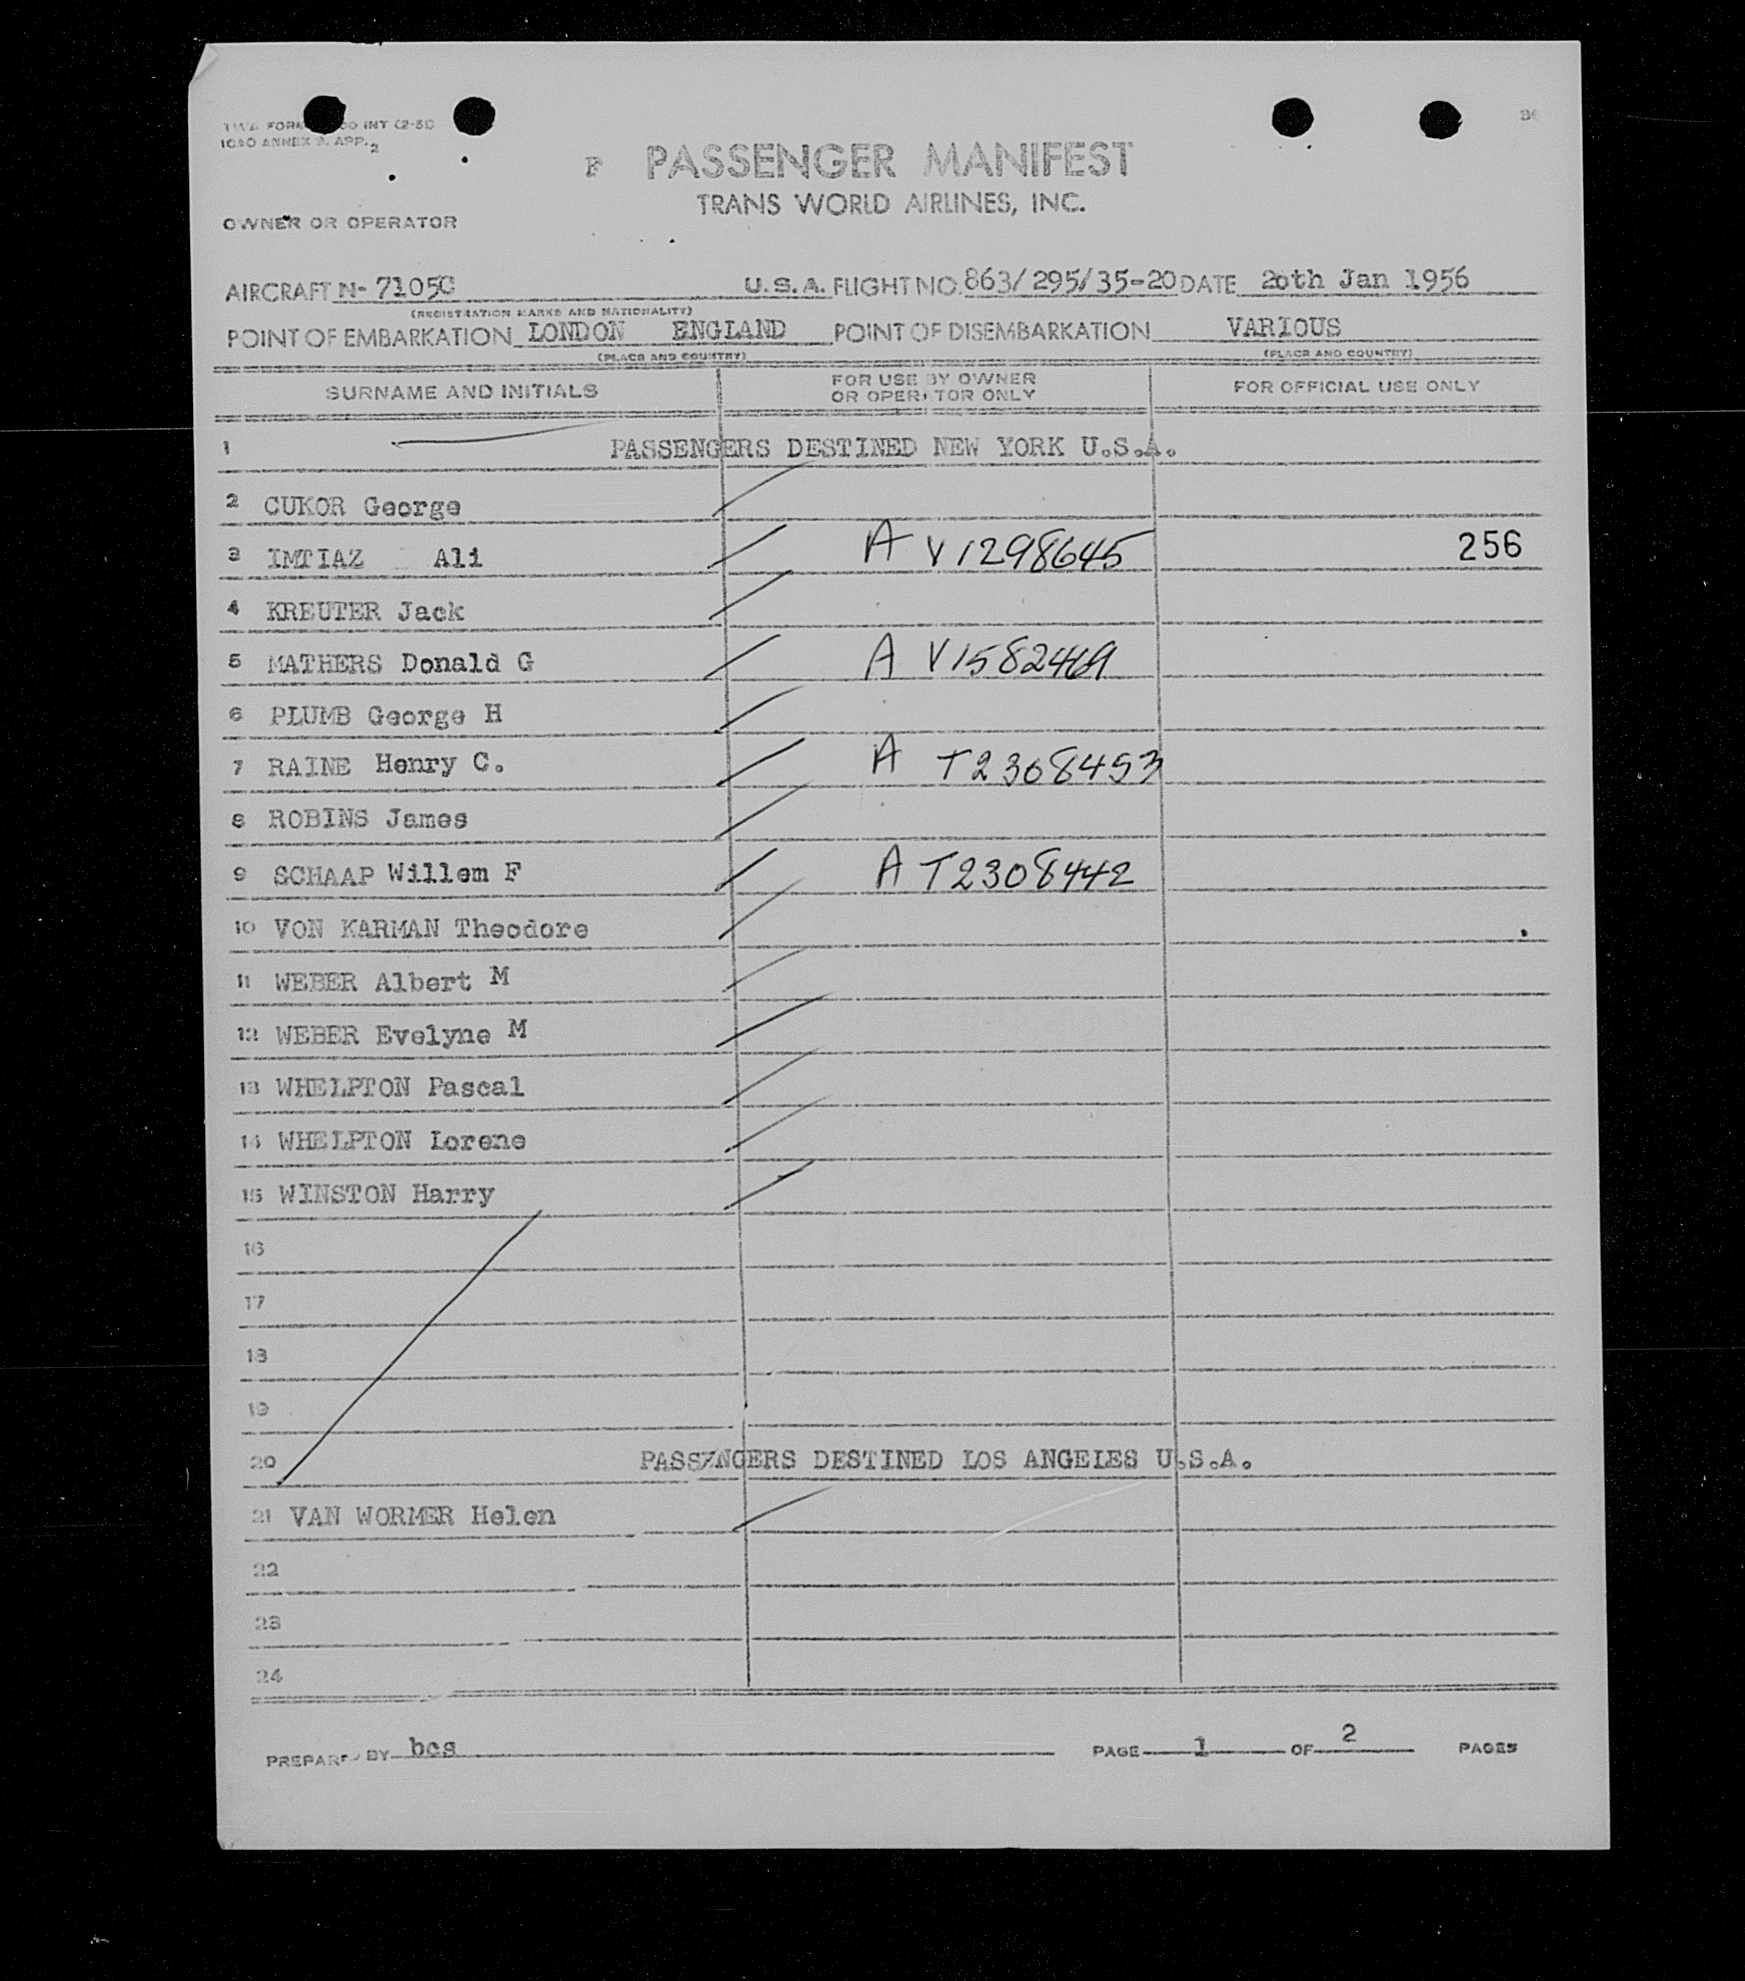 INT (2-51)
ANNEX 9. APP. 2
F PASSENGER MANIFEST
TRANS WORLD AIRLINES, INC.
OWNER OR OPERATOR
AIRCRAFT N- 7105C U.S.A. FLIGHT NO. 863/295/35-20 DATE 20th Jan 1956
(REGISTRATION MARKS AND NATIONALITY)
POINT OF EMBARKATION LONDON ENGLAND POINT OF DISEMBARKATION VARIOUS
(PLACE AND COUNTRY) (PLACE AND COUNTRY)
SURNAME AND INITIALS FOR USE BY OWNER OR OPERATOR ONLY FOR OFFICIAL USE ONLY
1 PASSENGERS DESTINED NEW YORK U.S.A.
2 CUKOR George
3 IMTIAZ Ali A V1298645 256
4 KREUTER Jack
5 MATHERS Donald G A V1582469
6 PLUMB George H
7 RAINE Henry C. A T2308453
8 ROBINS James
9 SCHAAP Willem F A T2308442
10 VON KARMAN Theodore
11 WEBER Albert M
12 WEBER Evelyne M
13 WHELPTON Pascal
14 WHELPTON Lorene
15 WINSTON Harry
16
17
18
19
20 PASSENGERS DESTINED LOS ANGELES U.S.A.
21 VAN WORMER Helen
22
23
24
PREPARED BY bcs PAGE 1 OF 2 PAGES